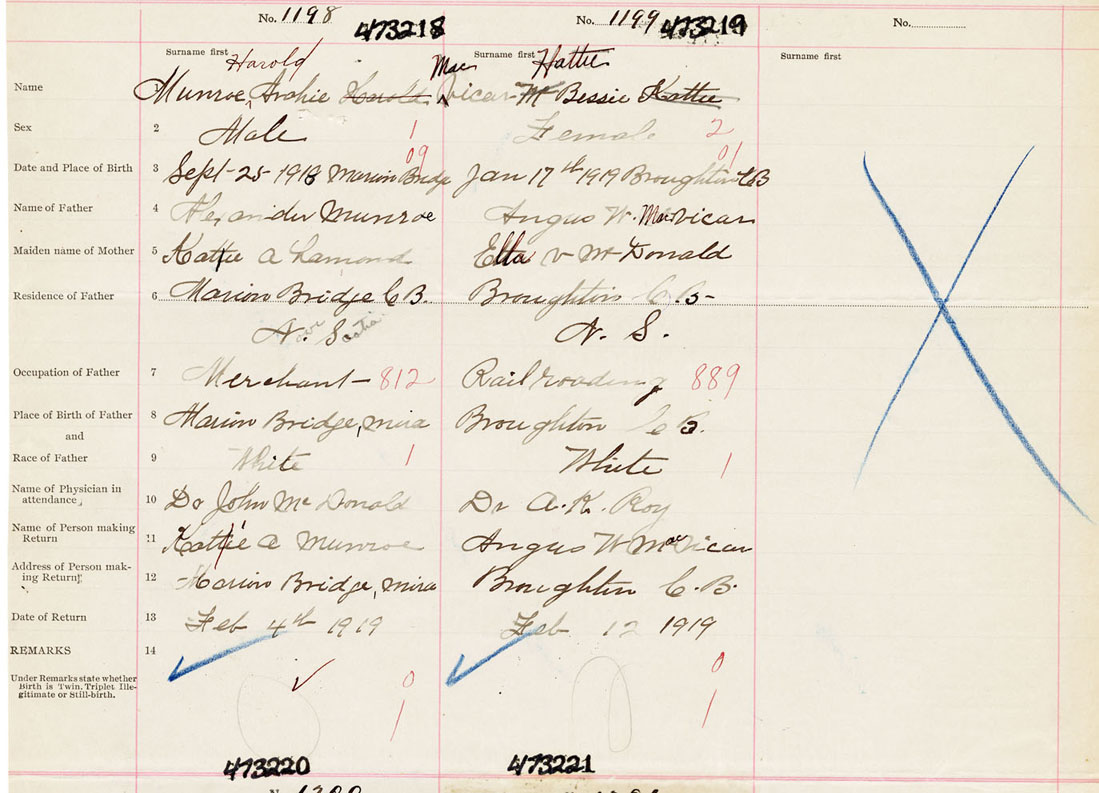 No. 1198 473218 No. 1199 473219 No.
Surname first Harold Surname first Hattie Surname first
Name 1 Munroe, Archie Harold Mac Vicar Mc Bessie Hattie
Sex 2 Male 1 Female 2
09 01
Date and Place of Birth 3 Sept-25-1918 Marion Bridge Jan 17th 1919 Broughton C B
Name of Father 4 Alexander Munroe Angus W. MacVicar
Maiden name of Mother 5 Kattie A Lamond Etta V Mc Donald
Residence of Father 6 Marion Bridge C B. Broughton C B-
Nova Scotia N. S.
Occupation of Father 7 Merchant - 812 Railroading 889
Place of Birth of Father 8 Marion Bridge, Mira Broughton C B.
and
Race of Father 9 White 1 White 1
Name of Physician in
attendance 10 Do John Mc Donald Dr A. K. Roy
Name of Person making
Return 11 Katie A Munroe Angus W MacVicar
Address of Person mak-
ing Return 12 Marion Bridge, Mira Broughton C. B.
Date of Return 13 Feb 4th 1919 Feb 12 1919
REMARKS 14
Under Remarks state whether
Birth is Twin. Triplet Ille-
gitimate or Still-birth.
0 0
1 1
473220 473221